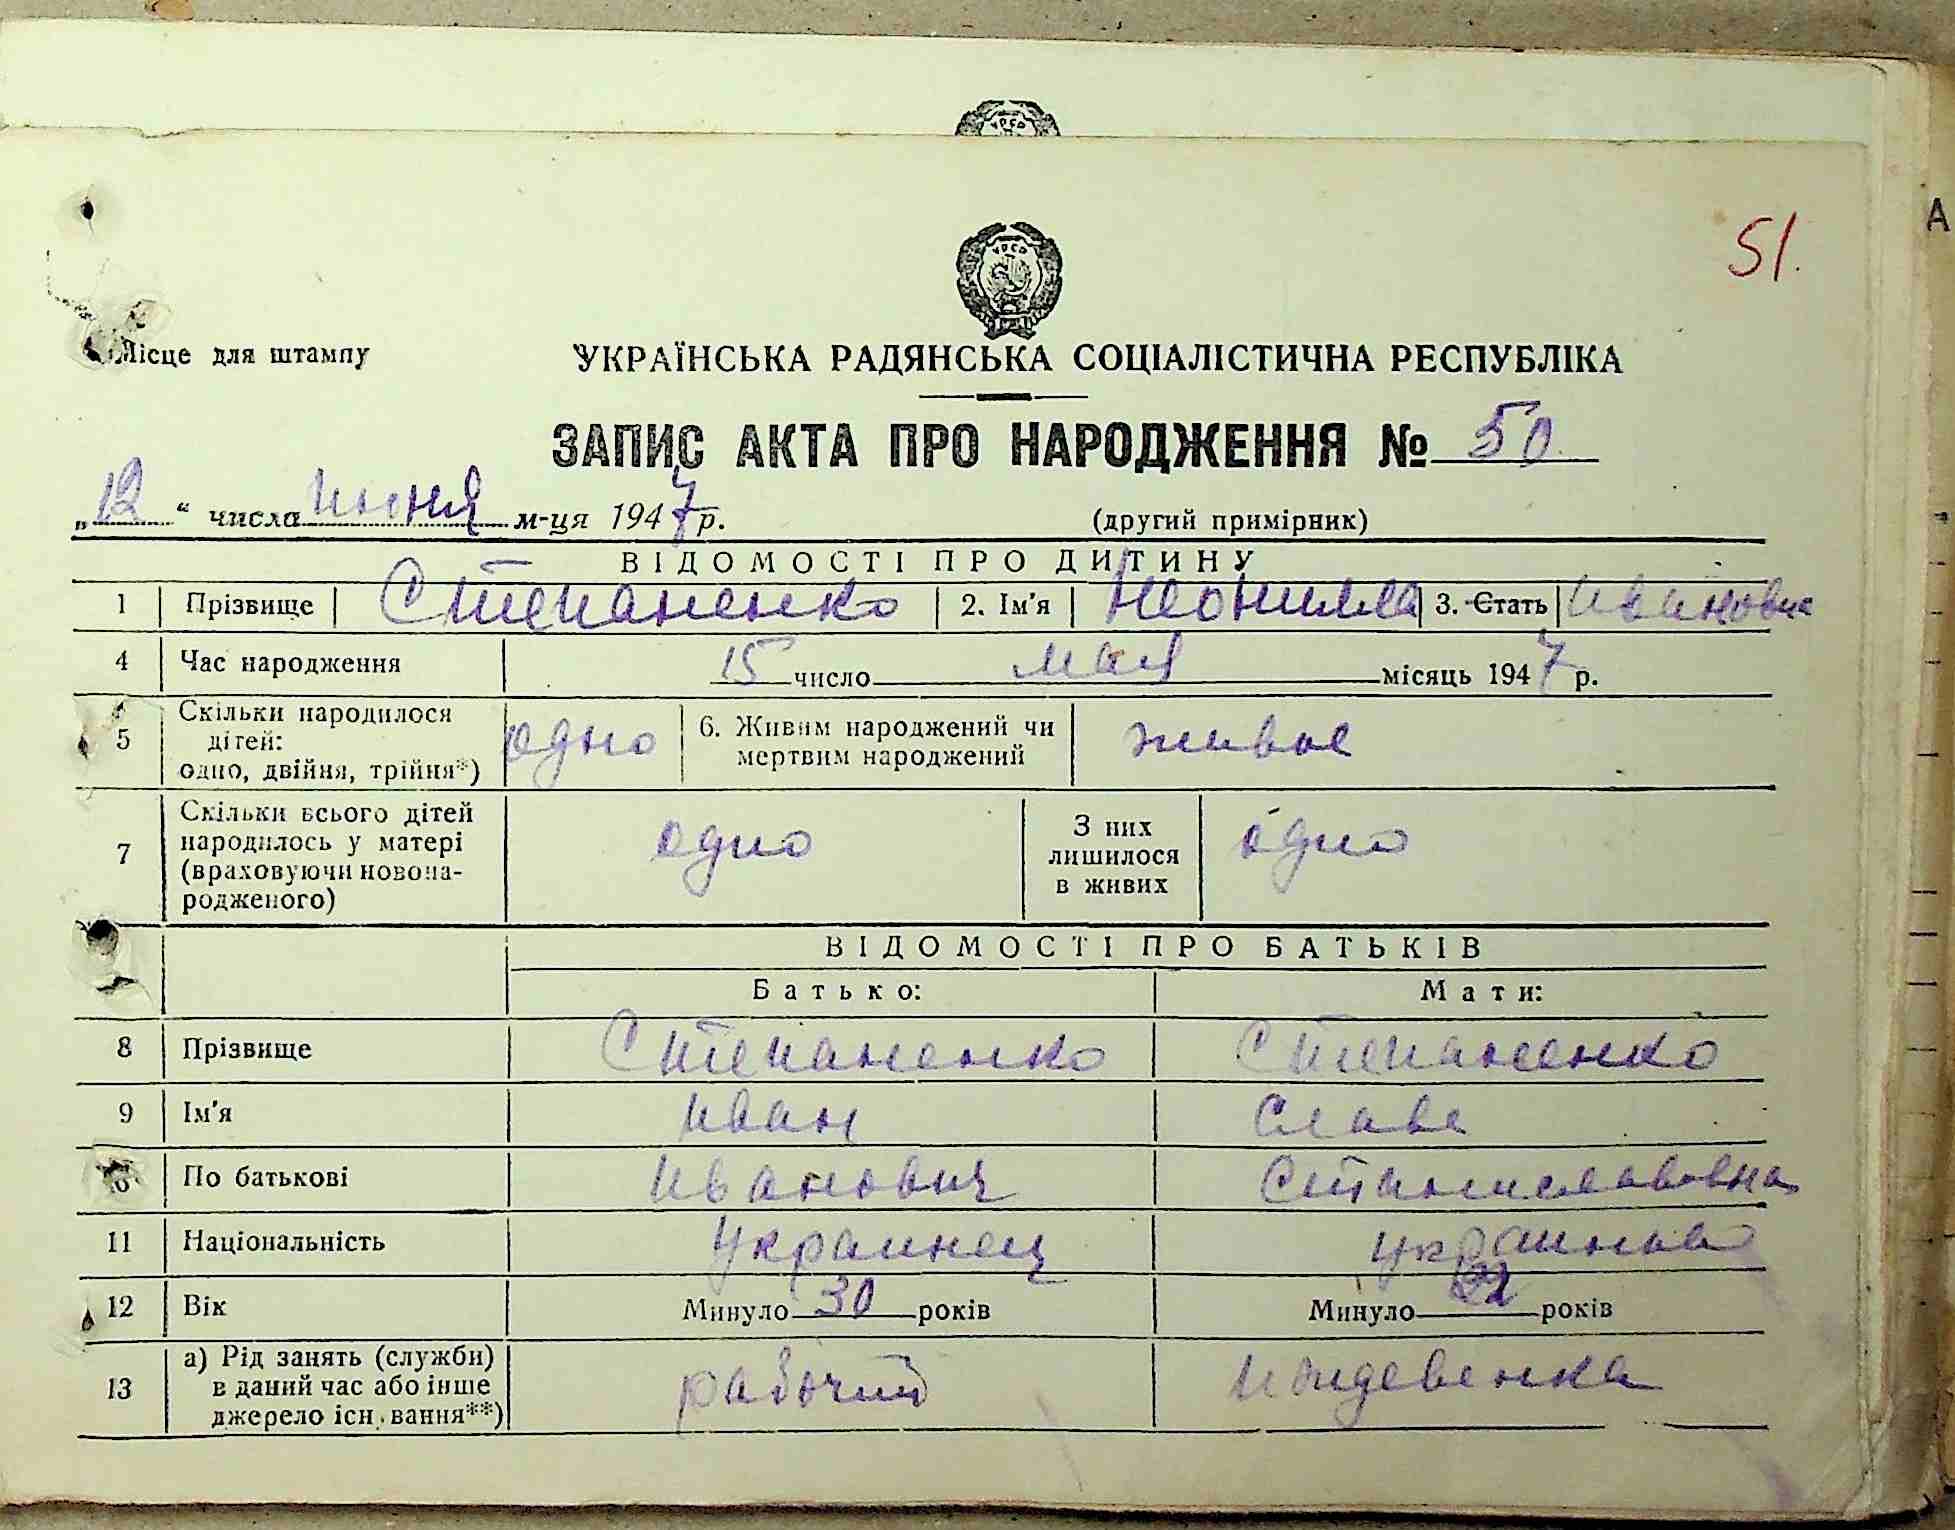 51.
Місце для штампу
УКРАЇНСЬКА РАДЯНСЬКА СОЦІАЛІСТИЧНА РЕСПУБЛІКА
ЗАПИС АКТА ПРО НАРОДЖЕННЯ № 50
„12“ числа июня м-ця 1947 р. (другий примірник)
ВІДОМОСТІ ПРО ДИТИНУ
1 Прізвище Степаненко 2. Ім'я Неонилла 3. Стать Ивановна
4 Час народження 15 число мая місяць 1947 р.
5 Скільки народилося дітей: одно, двійня, трійня*) одно 6. Живим народжений чи мертвим народжений живое
7 Скільки всього дітей народилось у матері (враховуючи новонародженого) одно З них лишилося в живих одно
ВІДОМОСТІ ПРО БАТЬКІВ
Батько: Мати:
8 Прізвище Степаненко Степаненко
9 Ім'я Иван Слава
10 По батькові Иванович Станиславовна
11 Національність Украинец украинка
12 Вік Минуло 30 років Минуло 22 років
13 а) Рід занять (служби) в даний час або інше джерело існування**) рабочий иждевенка
А